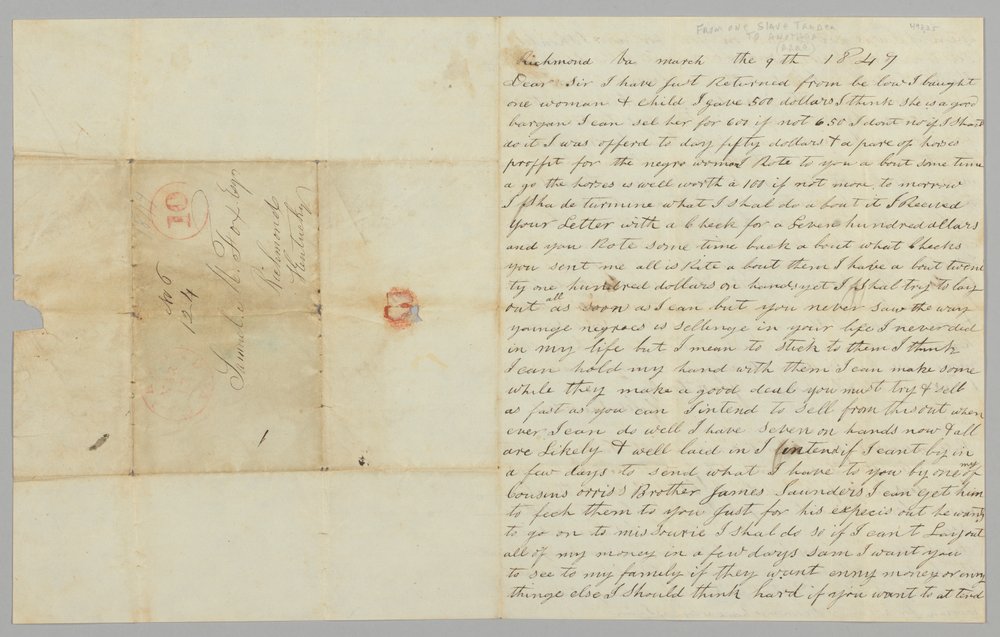 FROM ONE SLAVE TRADER
TO ANOTHER
Richmond va march the 9th 1847
Dear Sir I have Just Returned from be low I baught
one woman & child I gave 500 dollars I think she is a good
bargan I can sel her for 600 if not 650 I dont no if I Shal
do it I was offerd to day fifty dollars & a pare of horses
proffit for the negro woman I Rote to you a bout some time
a go the horses is well worth a 100 if not more to morrow
I shal de turmine what I shal do a bout it I Received
your Letter with a Check for a Seven hundred dollars
and you Rote some time back a bout what Checks
you sent me all is Rite a bout them I have a bout twen
ty one hundred dollars on hands yet I shal try to lay
out all as soon as I can but you never saw the way
younge negroes is sellinge in your life I never did
in my life but I mean to stick to them I think
I can hold my hand with them I can make some
while they make a good deal you must try & sell
as fast as you can I intend to sell from this out when
ever I can do well I have seven on hands now & all
are Likely & well laid in I intend if I cant by in
a few days to send what I have to you by one of my
Cousins orriss Brother James Saunders I can get him
to fech them to you Just for his expecis out he wants
to go on to missourie I shal do so if I can't Lay out
all of my money in a few days Sam I want you
to see to my family if they want enny money or enny
thinge else I Should think hard if you want to at tend
10
No 6
124
Samuel M. Fox Esqr
Richmond
Kentucky